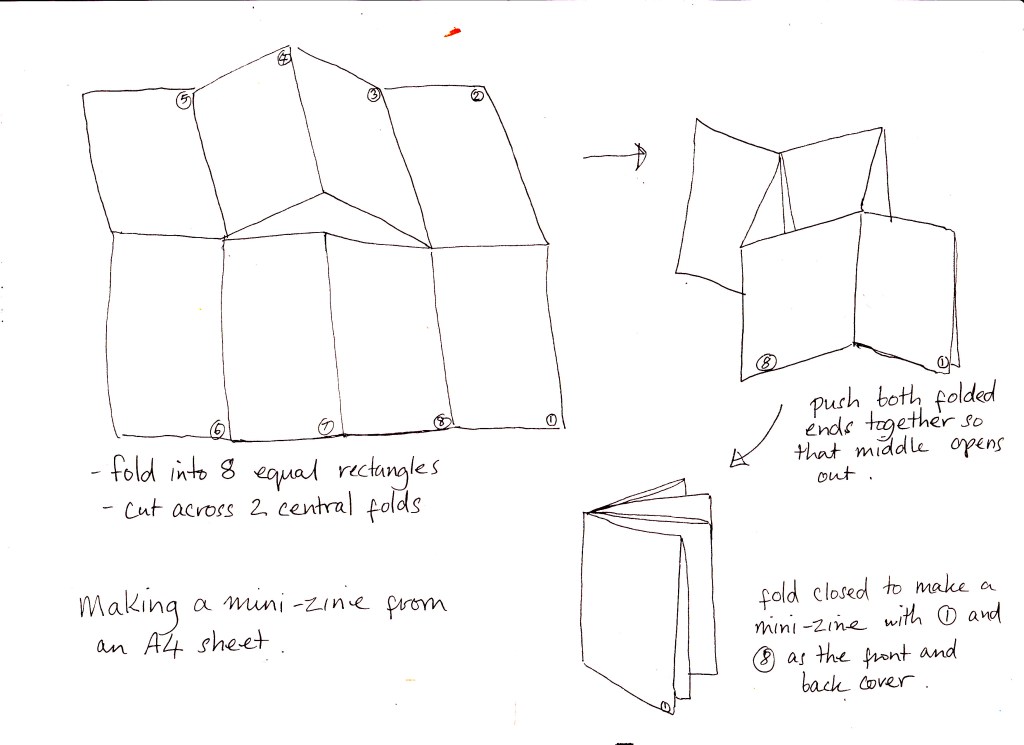 ④
⑤
③
②
⑥
⑦
⑧
①
- fold into 8 equal rectangles
- cut across 2 central folds
Making a mini-zine from
an A4 sheet.
⑧
①
push both folded
ends together so
that middle opens
out.
①
fold closed to make a
mini-zine with ① and
⑧ as the front and
back cover.